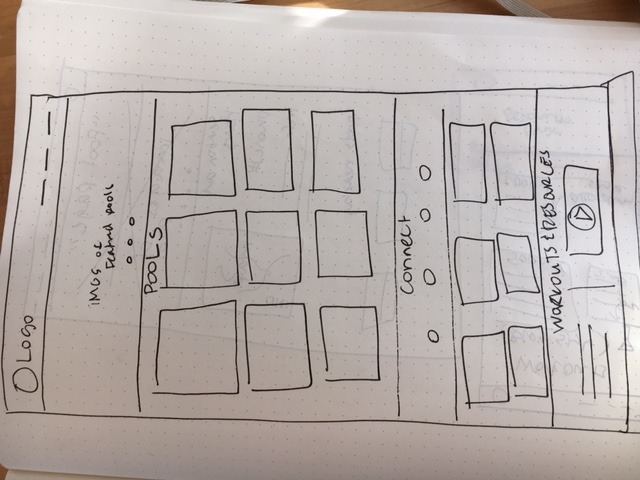 Logo
IMGS of
Featured pools
POOLS
Connect
WORKOUTS & RESOURCES